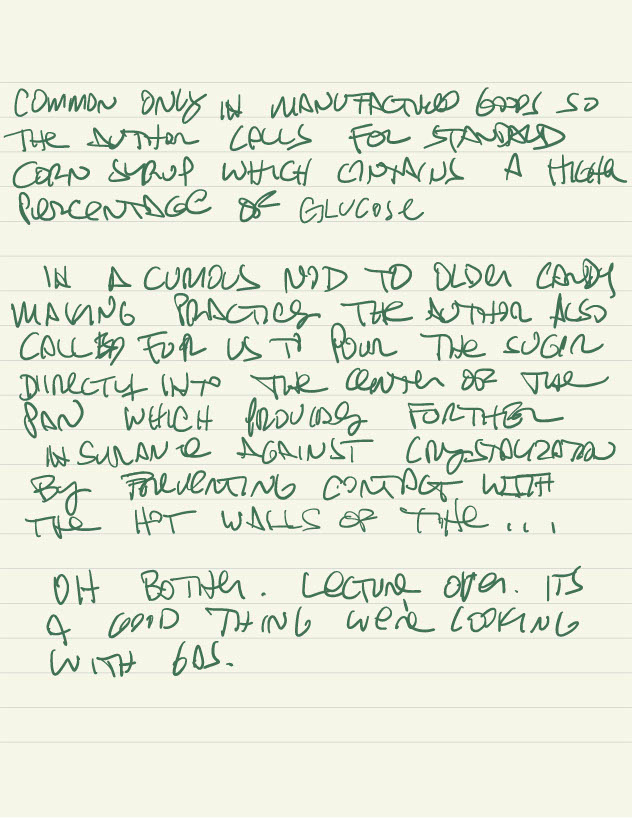 COMMON ONLY IN MANUFACTURED GOODS SO
THE AUTHOR CALLS FOR STANDARD
CORN SYRUP WHICH CONTAINS A HIGHER
PERCENTAGE OF GLUCOSE
IN A CURIOUS NOD TO OLDER CANDY
MAKING PRACTICES THE AUTHOR ALSO
CALLED FOR US TO POUR THE SUGAR
DIRECTLY INTO THE CENTER OF THE
PAN WHICH PROVIDES FURTHER
INSURANCE AGAINST CRYSTALIZATION
BY PREVENTING CONTACT WITH
THE HOT WALLS OF THE ....
OH BOTHER. LECTURE OVER. ITS
A GOOD THING WE'RE COOKING
WITH GAS.